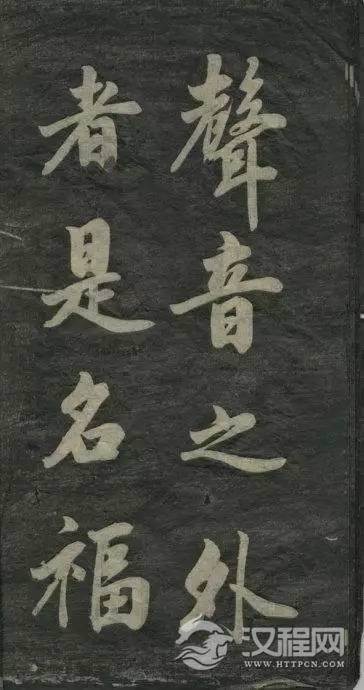 聲音之外
者是名福
汉程网
WWW.HTTPCN.COM